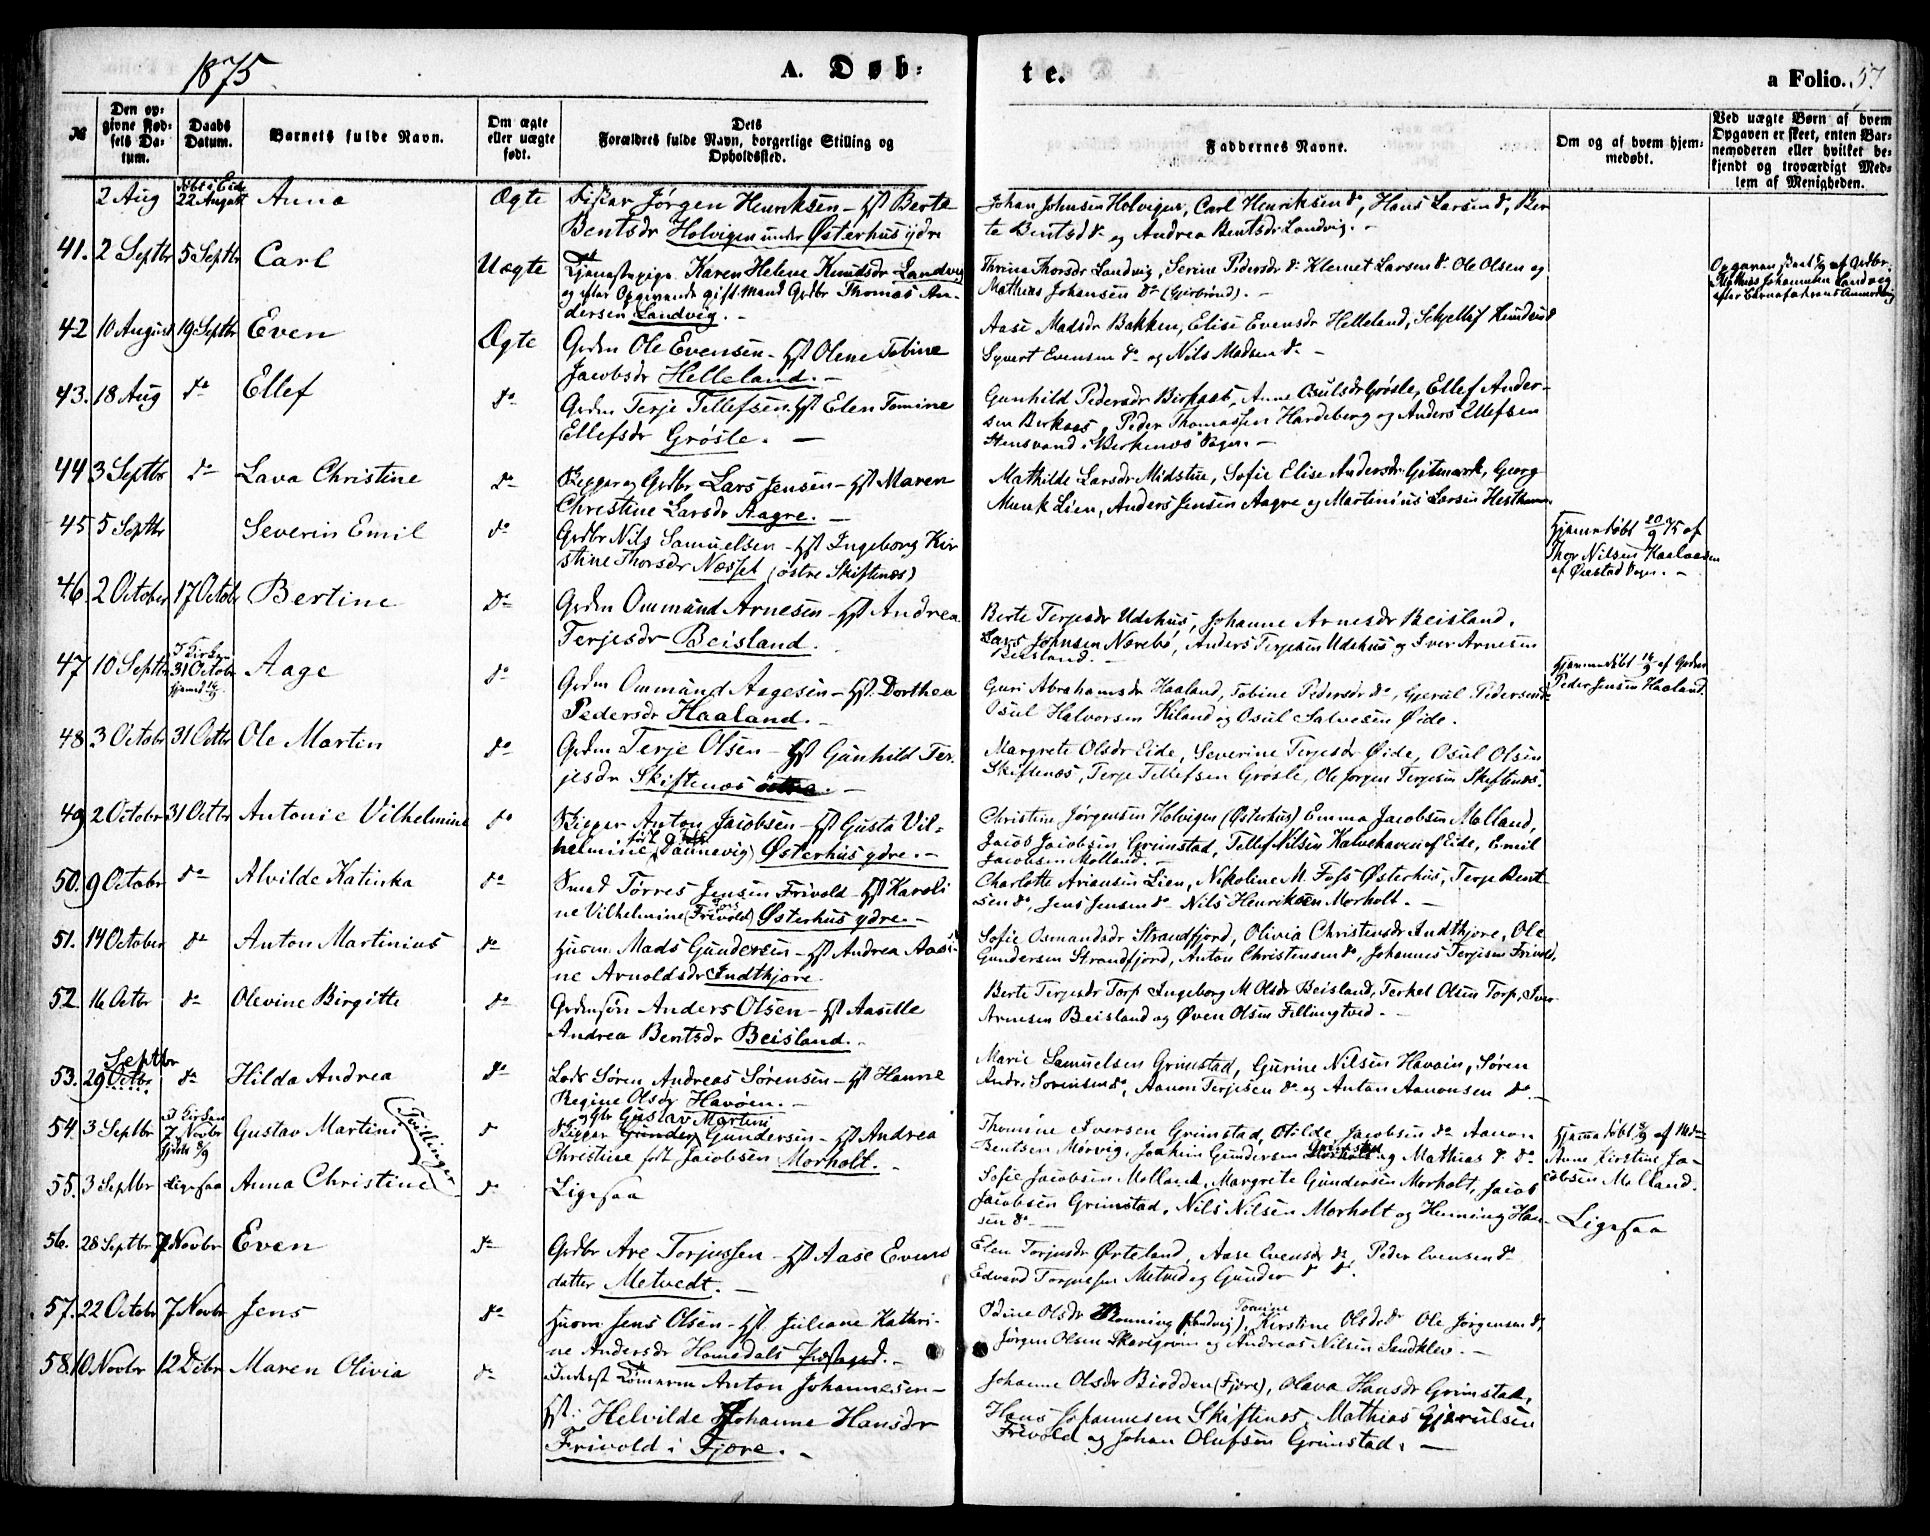 1875
A. Døb-
te.
a Folio. 57
№
Den opgivne Fødsels Datum.
Daabs Datum.
Barnets fulde Navn.
Om ægte eller uægte født.
Dets Forældres fulde Navn, borgerlige Stilling og Opholdssted.
Faddernes Navne.
Om og af hvem hjemmedøbt.
Ved uægte Børn af hvem Opgaven er skeet, enten Barnemoderen eller hvilket bekjendt og troværdigt Medlem af Menigheden.
2 Aug 22 August Anna Ægte Fisker Jørgen Henriksen - Hst Berte
Bentsdr Holvigen under Østerhus ydre
Johan Johnsen Holvigen, Carl Henriksen do, Hans Larsen do, Ber-
te Bentsd do og Andrea Bentsdr Landvig. -
41. 2 Septbr 5 Septbr Carl Uægte Tjenestepige Karen Helene Knudsdr Landvig
og efter Opgivende gift Mand Grdbr Thomas An-
dersen Landvig. -
Thrina Thorsdr Landvig, Serine Pedersdr do Klemet Larsen do Ole Olsen og
Mathias Johansen do
42 10 August 19 Septbr Even Ægte Grdm Ole Evensen - Hst Olene Tobine
Jacobsdr Helleland. -
Aase Madsdr Bakken, Elise Evensdr Helleland,
Syvert Evensen do og Nils Madsen do -
43. 18 Aug do Ellef do Grdm Terje Tellefsen Hst Elen Tomine
Ellefsdr Grøsle. -
Gunhild Pedersdr Birkaas, Anne Osulsdr Grøsle, Ellef Ander-
sen Berkaas, Peder Thomassen Hardeberg og Anders Ellefsen
Stensvand i Berkenæs Sogn. -
44 3 Septbr do Lava Christine do Skipper og Grdbr Lars Jensen - Hst Maren
Christine Larsdr Aagre. -
Mathilde Larsdr Midstue, Sofie Elise Andersdr Gitmark, Georg
Munk Lien, Anders Jensen Aagre og Martinius Larsen
45 5 Septbr Severin Emil do Grdbr Nils Samuelsen - Hst Ingeborg Kir-
stine Thorsdr Næsset (østre Skiftenæs)
Hjemmedøbt 20/9 75 af
Thor Nilsen Haalaasen
af Øiestad Sogn. -
46. 2 October 17 Octobr Bertine Do Grdm Ommund Arnesen - Hst Andrea
Terjesdr Beisland. -
Berte Terjesdr Udehus, Johanne Arnesdr Beisland,
Lars Johnsen Nærebø, Anders Terjesen Udehus og Iver Arnesen
Beisland. -
47 10 Septbr I Kirken 31 Octobr Aage do Grdm Ommund Aagesen - Hst. Dorthea
Pedersdr Haaland. -
Guri Abrahamsdr Haaland, Tobine Pedersdr do, Gjerul Pedersen do
Osul Halvorsen Kiland og Osul Salvesen Øide.
Hjemmedøbt 16/9 af Grdm
Peder Jensen Haaland
48 3 Octobr 31 Octbr Ole Martin do Grdm Terje Olsen - Hst Gunhild Ter-
jesdr Skiftenæs -
Margrete Olsdr Eide, Severine Terjesdr Øide, Osul Olsen
Skiftenæs, Terje Tellefsen Grøsle, Ole Jørgen Terjesen Skiftenæs.
49 2 Octobr 31 Octbr Antonie Vilhelmine do Skipper Anton Jacobsen - Hst Gusta Vil-
helmine (født Dannevig) Østerhus ydre. -
Christine Jørgensen Holvigen (Østerhus) Emma Jacobsen Molland,
Jacob Jacobsen Grimstad, Tellef Nilsen Kalvehaven af Eide, Emil
Jacobsen Molland. -
50. 9 Octobr do Alvilde Katinka do Smed Torres Jensen Frivold - Hst Karoli-
ne Vilhelmine (Frivold) Østerhus ydre. -
Charlotte Ariansen Lien, Nikoline M. Foss Østerhus, Terje Bent-
sen do, Jens Jensen do Nils Henriksen Morholt. -
51. 14 October do Anton Martinius do Husm. Mads Gundersen - Hst Andrea Aasi-
ne Arnoldsdr Indtkjøre.
Sofie Osmandsdr Strandfjord, Olivia Christensdr Indtkjøre, Ole
Gundersen Strandfjord, Anton Christensen do, Johannes Terjesen Frivold.
52 16 Octbr do Olevine Birgitte do Grdmsøn Anders Olsen - Hst Aasille
Andrea Bentsdr Beisland. -
Berte Terjesdr Torp Ingeborg M Olsdr Beisland, Terkel Olsen Torp, Iver
Arnesen Beisland og Øven Olsen Fillingtved. -
53. 29 Septbr Octbr. do Hilda Andrea do Lods Søren Andreas Sørensen - Hst Hanne
Regine Olsdr Havøen. -
Marie Samuelsen Grimstad, Gurine Nilsen Havøin, Søren
Andr. Sørensen do, Aanon Terjesen do og Anton Aanonsen do. -
54. 3 Septbr I Kirken 7 Novbr Gustav Martini (Tvillinger) do Skipper Gustav Martini Gundersen - Hst Andrea
Christine født Jacobsen Morholt. -
Thomine Iversen Grimstad, Otilde Jacobsen do Aanon
Bentsen Mørvig, Joakim Gundersen Grimstad og Mathias do do
Hjemmedøbt 8/9 af Mdme
Anne Kirstine Ja-
cobsen Molland.
55. 3 Septbr Ligesaa Anna Christine do Ligesaa
Sofie Jacobsen Molland, Margrete Gundersen Morholt, Jacob
Jacobsen Grimstad, Nils Nilsen Morholt og Henning Han-
sen do -
Ligesaa
56. 28 Septbr 7 Novbr Even do Grdbr Are Torjussen - Hst Aase Evens-
datter Metvedt. -
Elen Torjusdr Ørteland, Aase Evensdr do, Peder Evensen do
Edvard Torjussen Metved og Gunder do do.
57. 22 Octobr 7 Novbr Jens do Husm. Jens Olsen - Hst. Juliane Kathri-
ne Andersdr Homedals Præstegrd. -
Odine Olsdr Rønning (Landvig), Tomine Kirstine Olsdr do Ole Jørgensen do,
Jørgen Olsen Skaregrøm og Andreas Nilsen Sandklev. -
58. 10 Novbr 12 Debr Maren Olivia do Inderst Tømmerm Anton Johannesen -
Hst. Helvilde Johanne Hansdr
Frivold i Fjære. -
Johanne Olsdr Biodden (Fjære), Olava Hansdr Grimstad,
Hans Johannesen Skiftenæs, Mathias Gjerulsen
Frivold og Johan Olufsen Grimstad. -